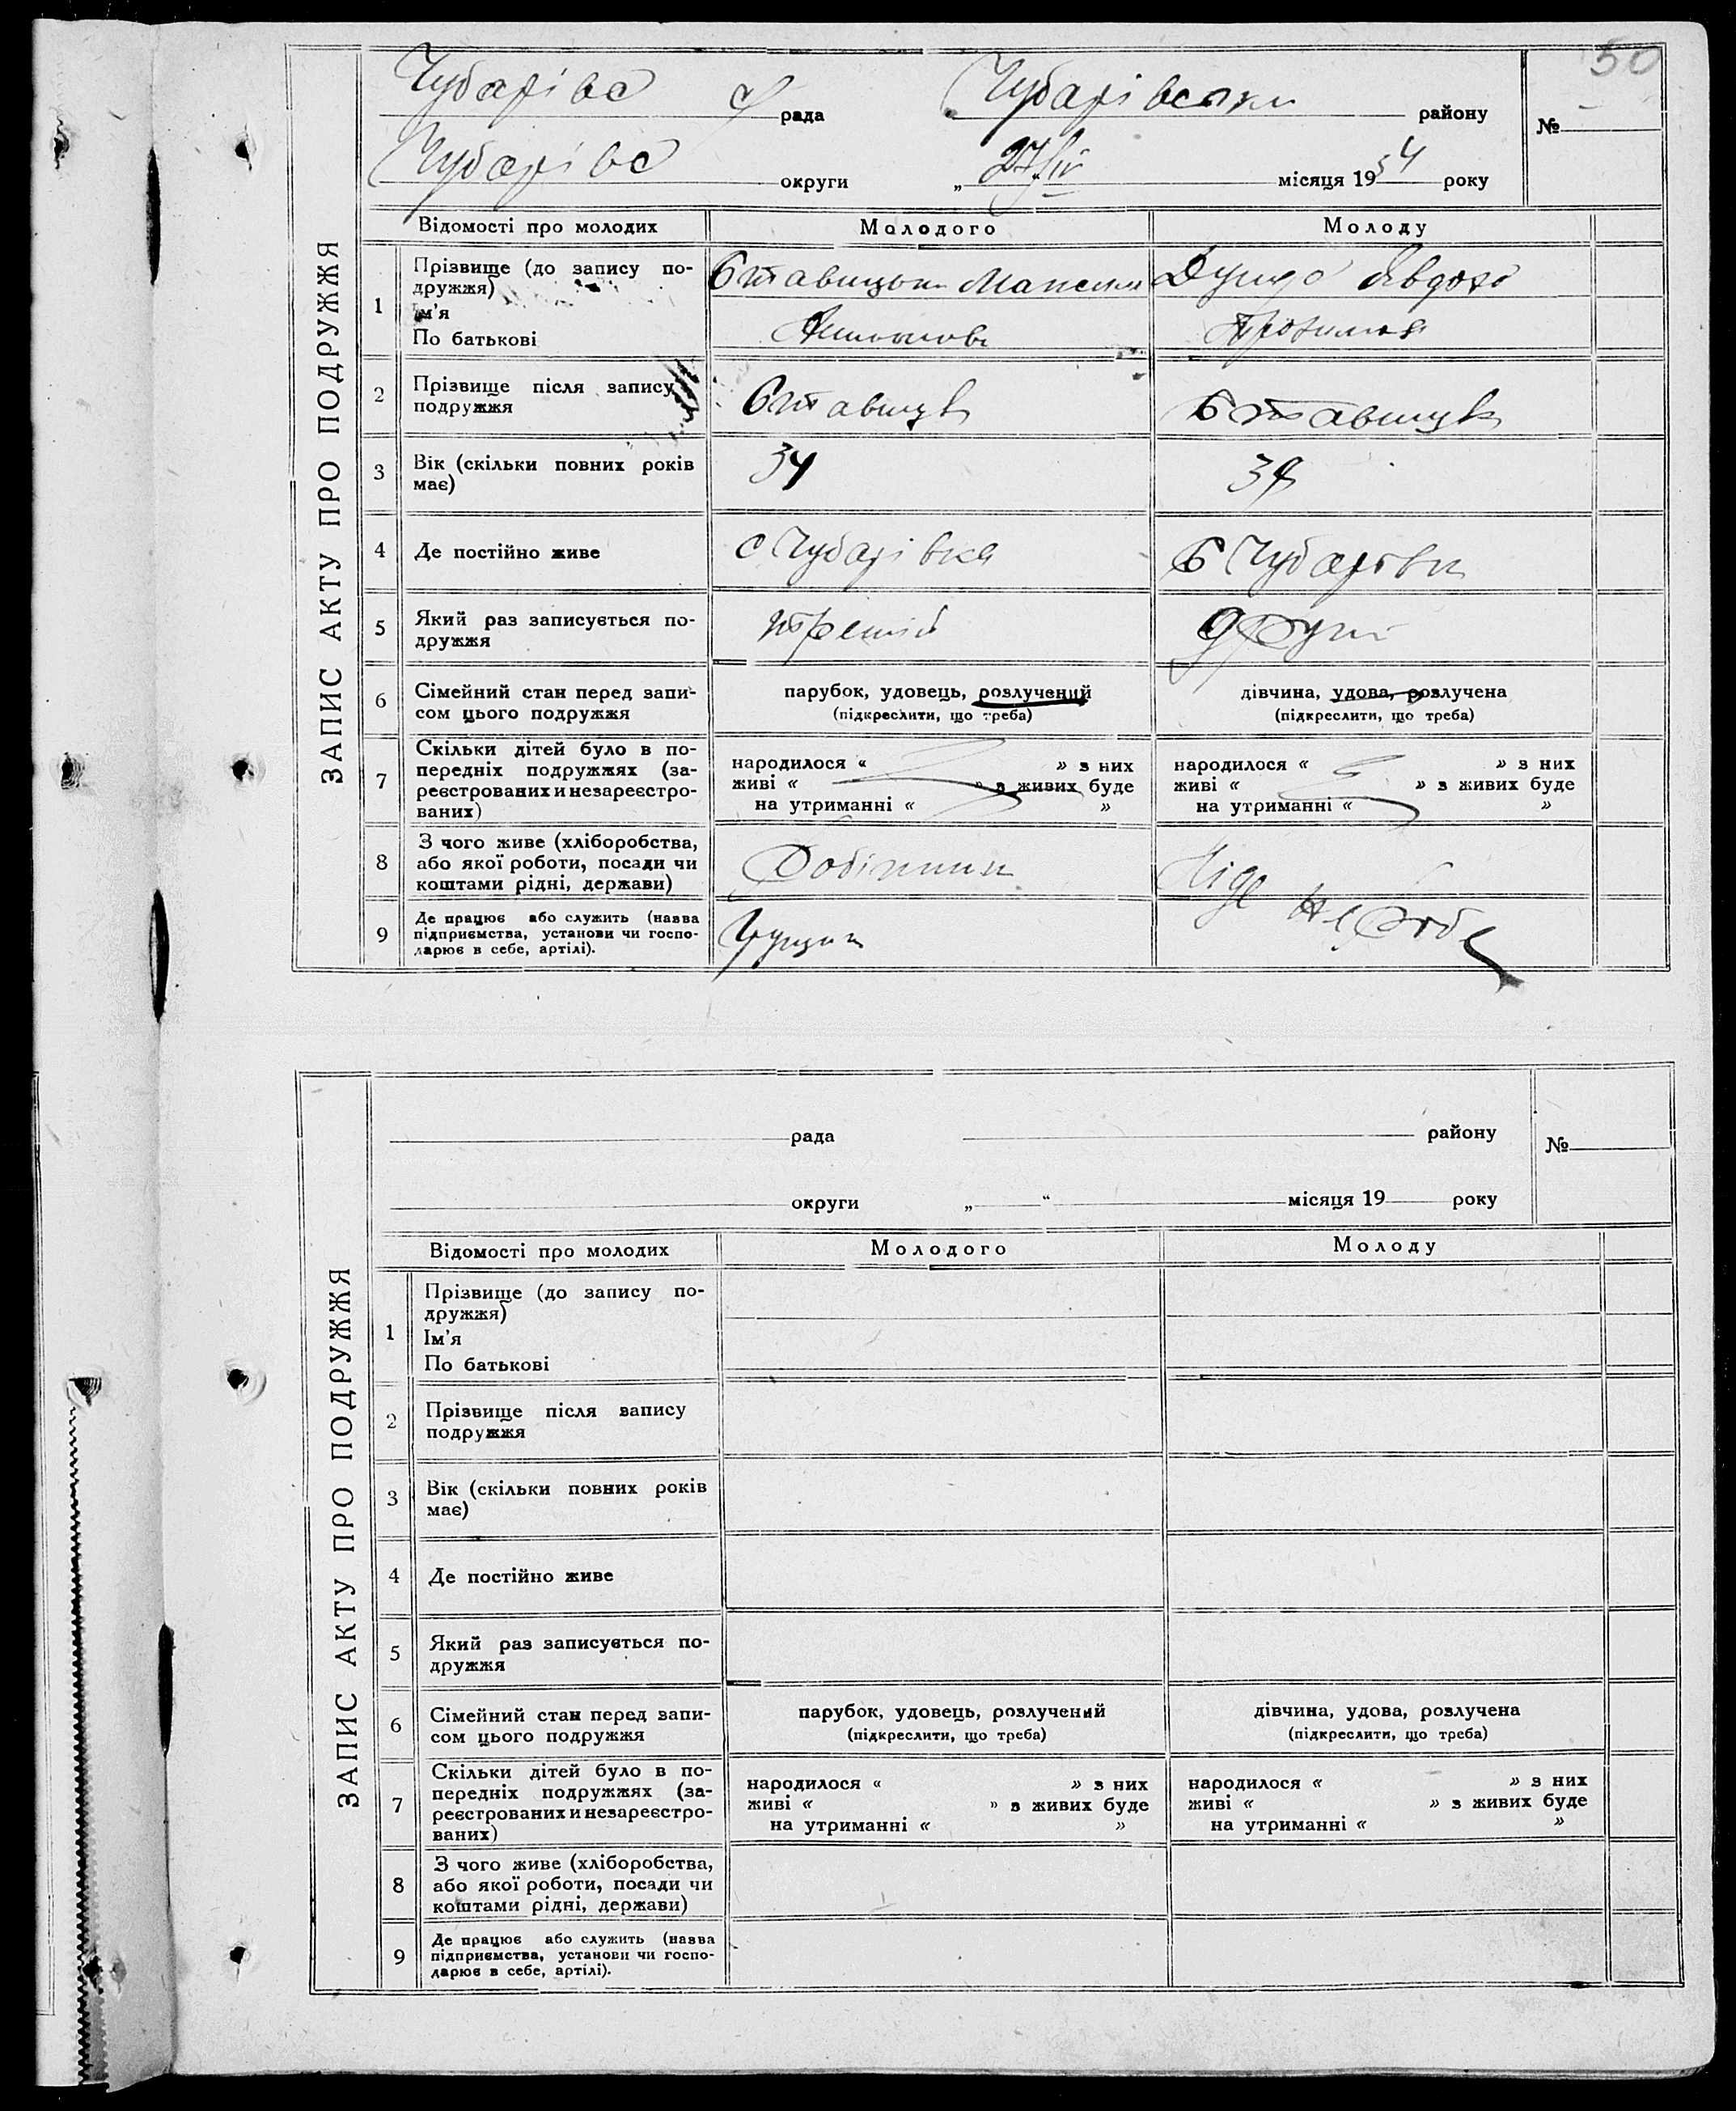 50
Чубарівс с рада Чубарівськи району №
Чубарівс округи „27/IV місяця 1934 року
ЗАПИС АКТУ ПРО ПОДРУЖЖЯ
Відомості про молодих Молодого Молоду
1 Прізвище (до запису по-
дружжя)
Ім'я
По батькові
Явдохо
2 Прізвище після запису
подружжя
3 Вік (скільки повних років
має)
34
4 Де постійно живе
с Чубарівка
С Чубарівки
5 Який раз записується по-
дружжя
третій
другі
6 Сімейний стан перед запи-
сом цього подружжя
парубок, удовець, розлучений
(підкреслити, що треба)
дівчина, удова, розлучена
(підкреслити, що треба)
7 Скільки дітей було в по-
передніх подружжях (за-
реєстрованих и незареєстро-
ваних)
народилося “ ” з них
живі “ ” з живих буде
на утриманні “ ”
народилося “ ” з них
живі “ ” з живих буде
на утриманні “ ”
8 З чого живе (хліборобства,
або якої роботи, посади чи
коштами рідні, держави)
Робітник
Ніде не робе
9 Де працює або служить (назва
підприємства, установи чи госпо-
дарює в себе, артілі).
рада району №
округи „ “ місяця 19 року
ЗАПИС АКТУ ПРО ПОДРУЖЖЯ
Відомості про молодих Молодого Молоду
1 Прізвище (до запису по-
дружжя)
Ім'я
По батькові
2 Прізвище після запису
подружжя
3 Вік (скільки повних років
має)
4 Де постійно живе
5 Який раз записується по-
дружжя
6 Сімейний стан перед запи-
сом цього подружжя
парубок, удовець, розлучений
(підкреслити, що треба)
дівчина, удова, розлучена
(підкреслити, що треба)
7 Скільки дітей було в по-
передніх подружжях (за-
реєстрованих и незареєстро-
ваних)
народилося “ ” з них
живі “ ” з живих буде
на утриманні “ ”
народилося “ ” з них
живі “ ” з живих буде
на утриманні “ ”
8 З чого живе (хліборобства,
або якої роботи, посади чи
коштами рідні, держави)
9 Де працює або служить (назва
підприємства, установи чи госпо-
дарює в себе, артілі).